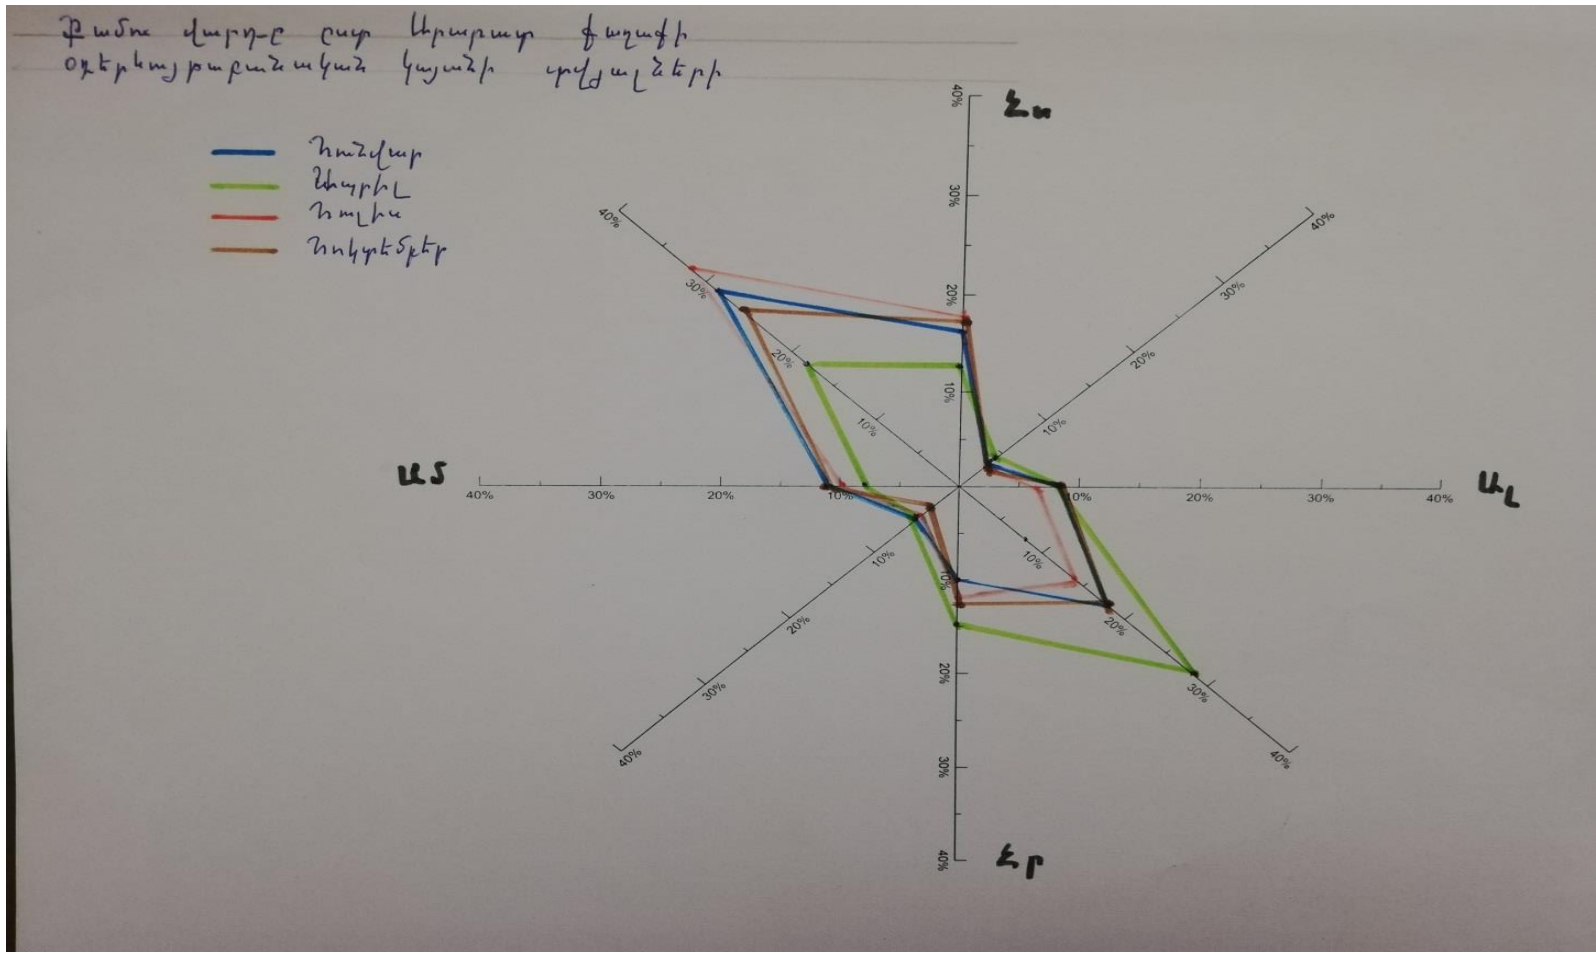 Քամու վարդը ըստ Արարատ քաղաքի
օդերևութաբանական կայանի տվյալների
Հունվար
Ապրիլ
Հուլիս
Հոկտեմբեր
Հս
40%
30%
20%
10%
40%
30%
20%
10%
40%
30%
20%
10%
ԱՄ
40%
30%
20%
10%
10%
20%
30%
40%
ԱԼ
10%
20%
30%
40%
10%
20%
30%
40%
10%
20%
30%
40%
Հր